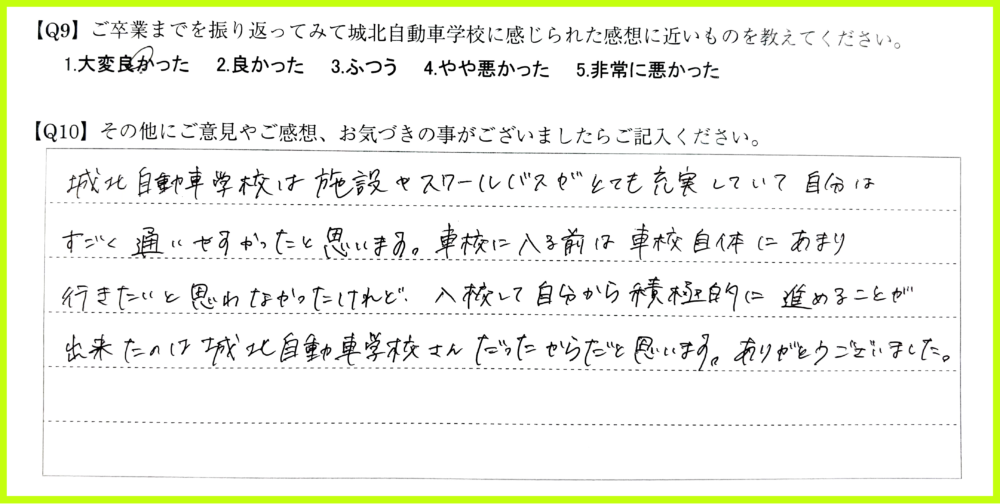 【Q9】ご卒業までを振り返ってみて城北自動車学校に感じられた感想に近いものを教えてください。
1.大変良かった 2.良かった 3.ふつう 4.やや悪かった 5.非常に悪かった
【Q10】その他にご意見やご感想、お気づきの事がございましたらご記入ください。
城北自動車学校は施設やスクールバスがとても充実していて自分は
すごく通いやすかったと思います。車校に入る前は車校自体にあまり
行きたいと思わなかったけれど、入校して自分から積極的に進めることが
出来たのは城北自動車学校さんだったからだと思います。ありがとうございました。